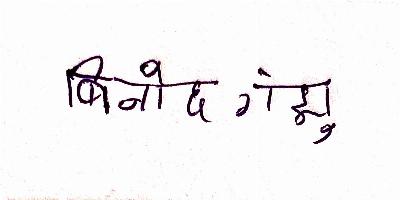 बिनोद गंझु